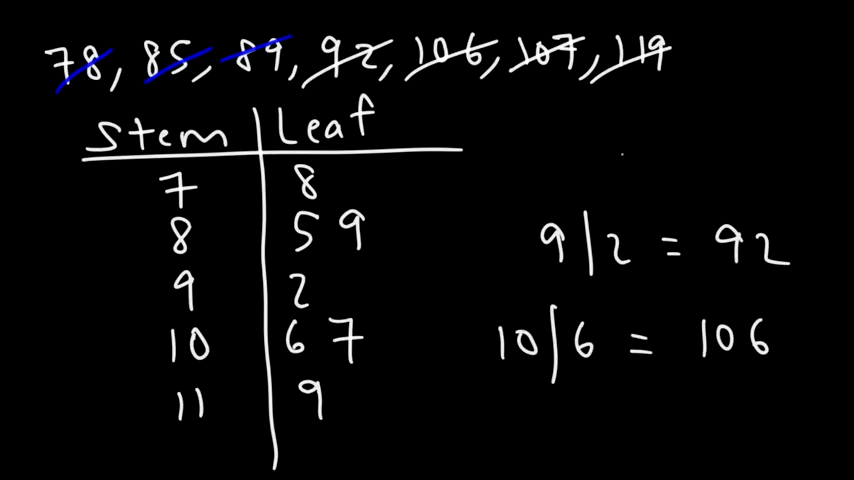 78, 85, 89, 92, 106, 107, 119
Stem Leaf
7 8
8 5 9
9 2
10 6 7
11 9
9|2 = 92
10|6 = 106